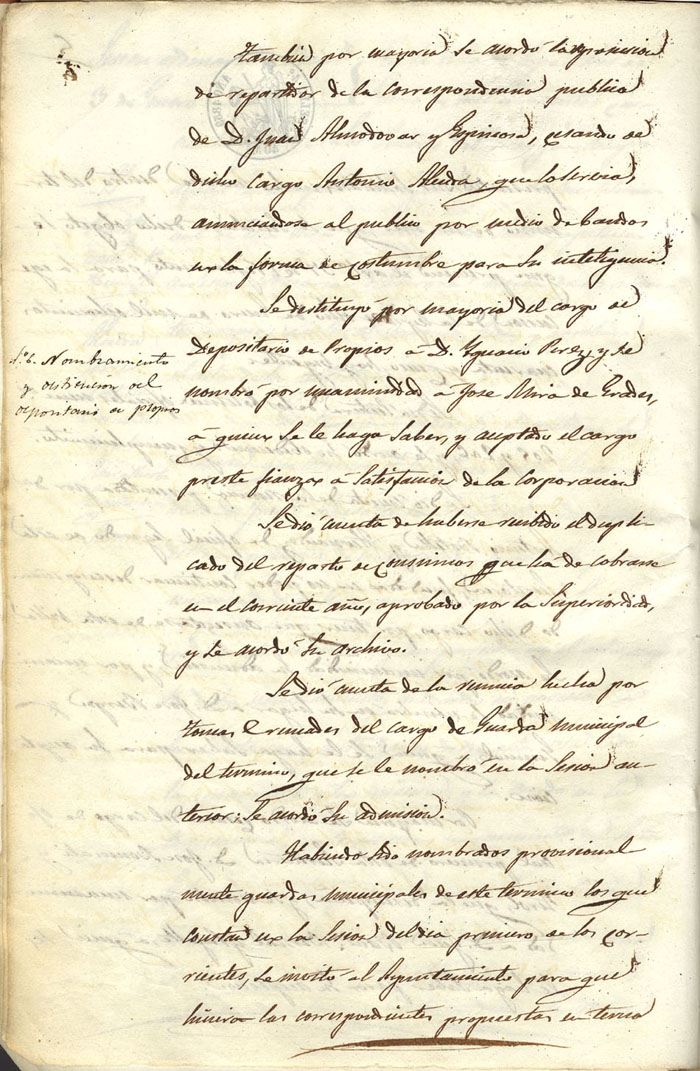 Tambien por mayoria se acordó la
de repartidor de la correspondencia publica
de D. Juan Almodovar y Espinosa, cesando de
dicho cargo Antonio que lo servia,
anunciandose al publico por medio de bandos
en la forma de costumbre para su inteligencia.
Se destituyó por mayoria del cargo de
Depositario de Propios á D. Ygnacio Perez, y se
nombró por unanimidad á Jose Mira de
á quien se le haga saber, y aceptado el cargo
preste fianza á satisfaccion de la Corporacion
Nº 6. Nombramiento
y destitucion del
depositario de propios
Se dió cuenta de haberse recibido el dupli-
cado del reparto de consumos que há de cobrarse
en el corriente año, aprobado por la Superioridad,
y se acordó su archivo.
Se dió cuenta de la renuncia hecha por
Tomas del cargo de Guarda municipal
del termino, que se le nombró en la Sesion an-
terior: Se acordó su admision.
Habiendo sido nombrados provisional
mente guardas municipales de este termino los que
constan en la Sesion del dia primero de los cor-
rientes, se invitó al Ayuntamiento para que
hiciera las correspondientes propuestas en terna